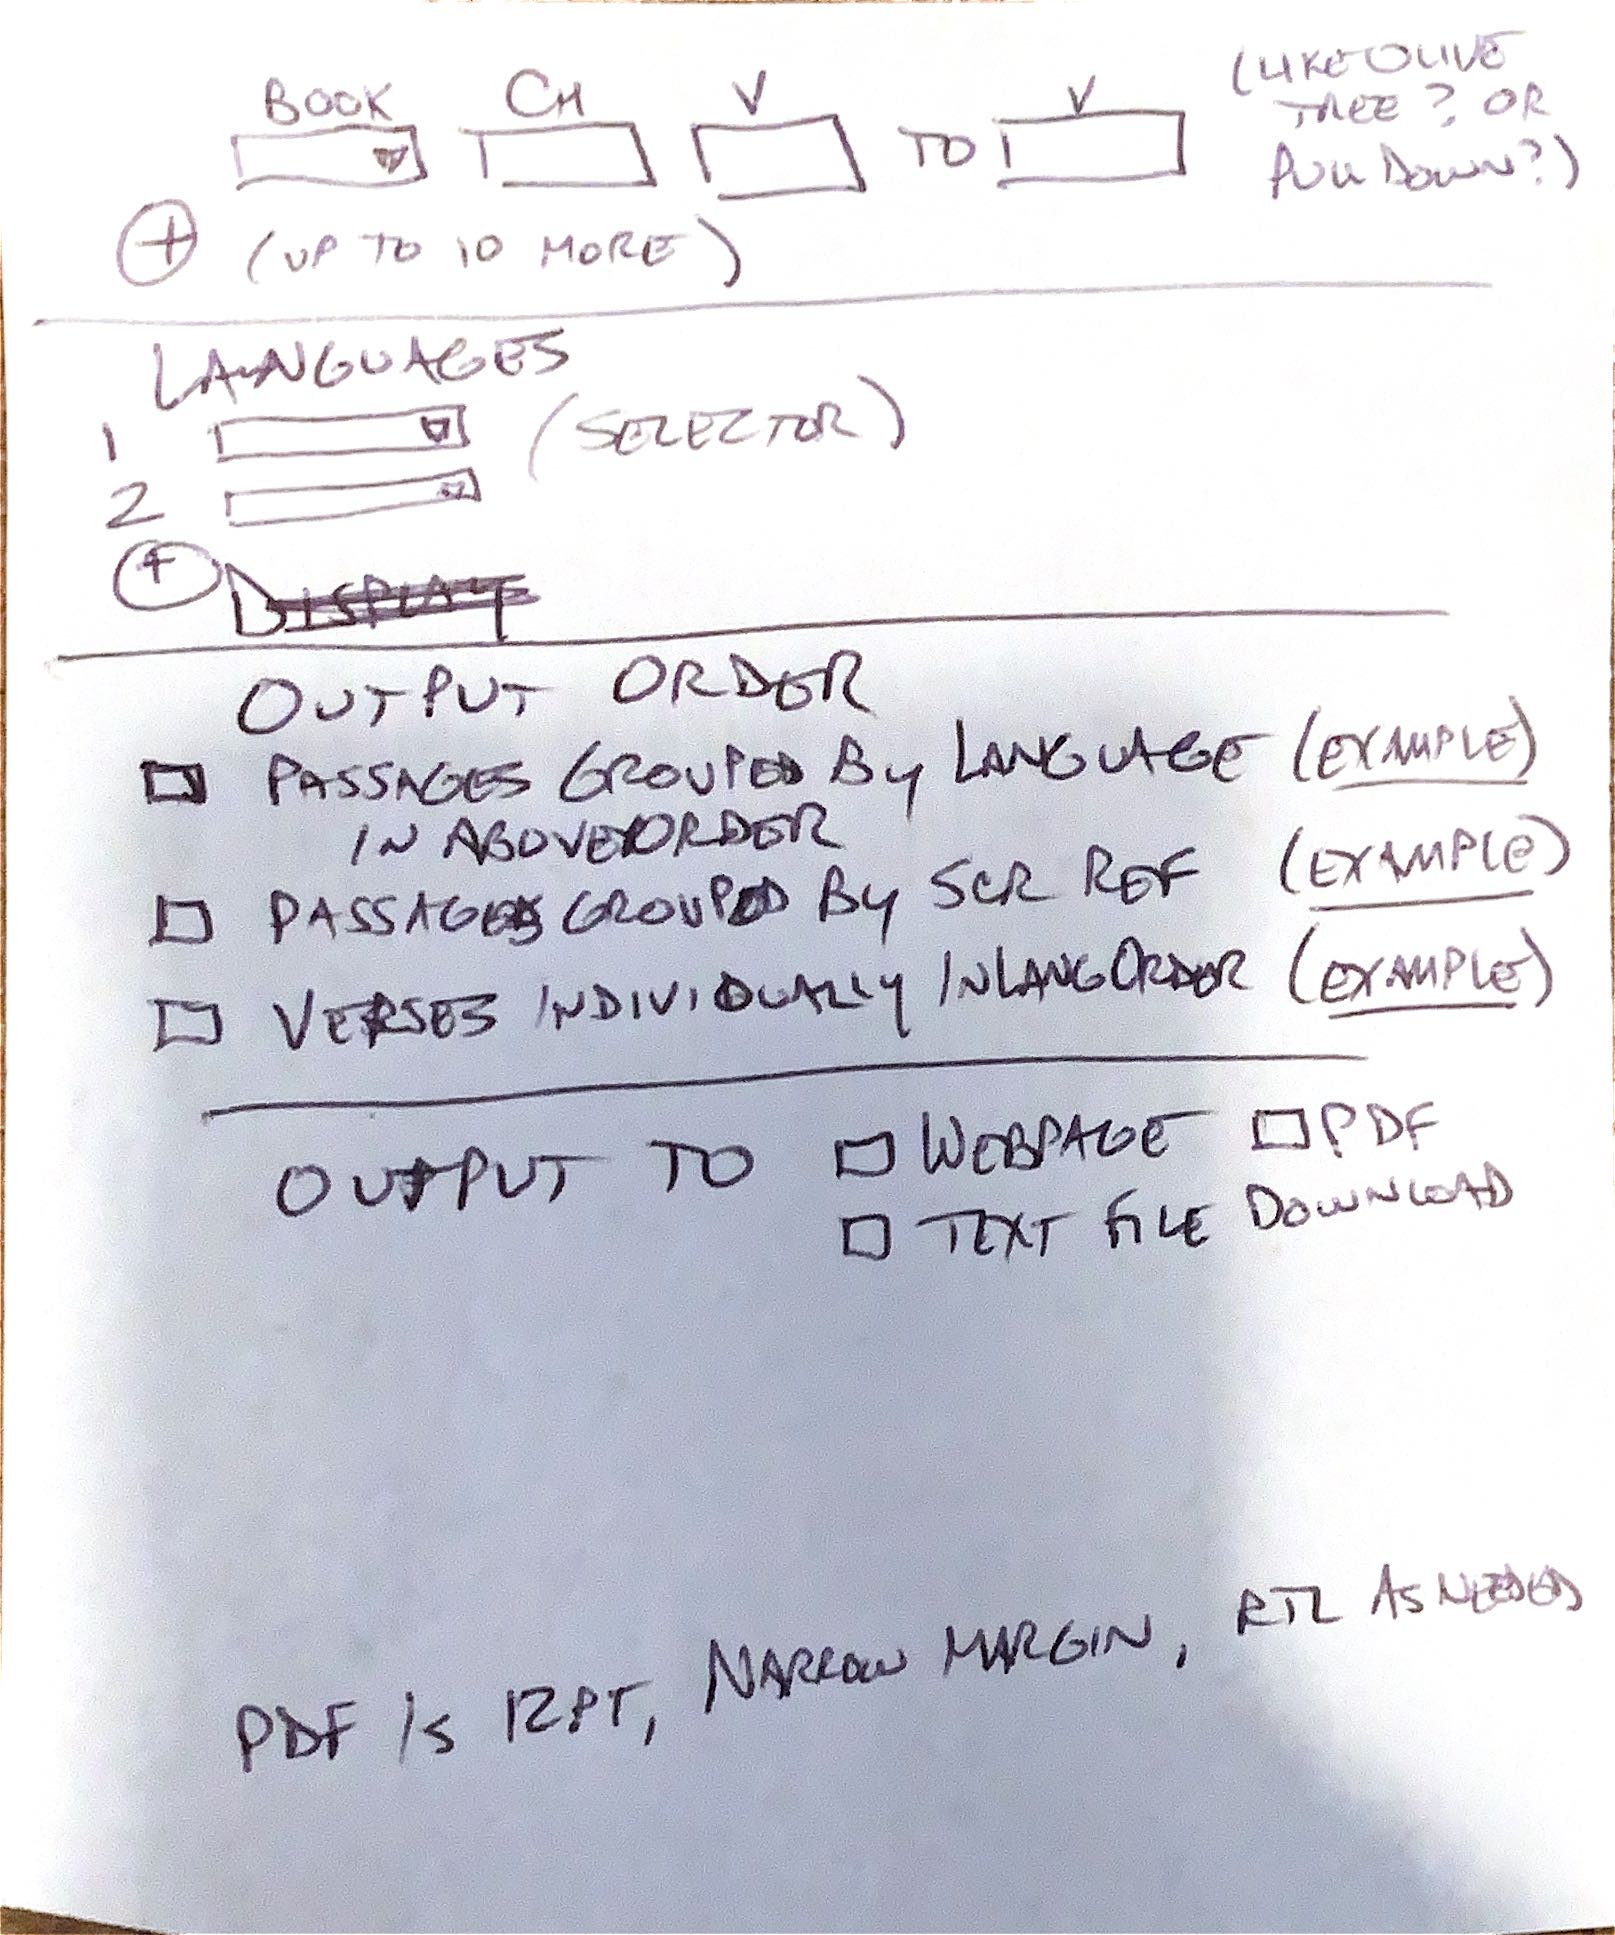 BOOK CH V TO V (LIKE OLIVE
TREE? OR
PULL DOWN?)
+ (UP TO 10 MORE)
LANGUAGES
1 (SELECTOR)
2
+ DISPLAY
OUTPUT ORDER
PASSAGES GROUPED BY LANGUAGE (EXAMPLE)
IN ABOVE ORDER
PASSAGES GROUPED BY SCR REF (EXAMPLE)
VERSES INDIVIDUALLY IN LANG ORDER (EXAMPLE)
OUTPUT TO WEBPAGE PDF
TEXT FILE DOWNLOAD
PDF IS 12PT, NARROW MARGIN, RTL AS NEEDED